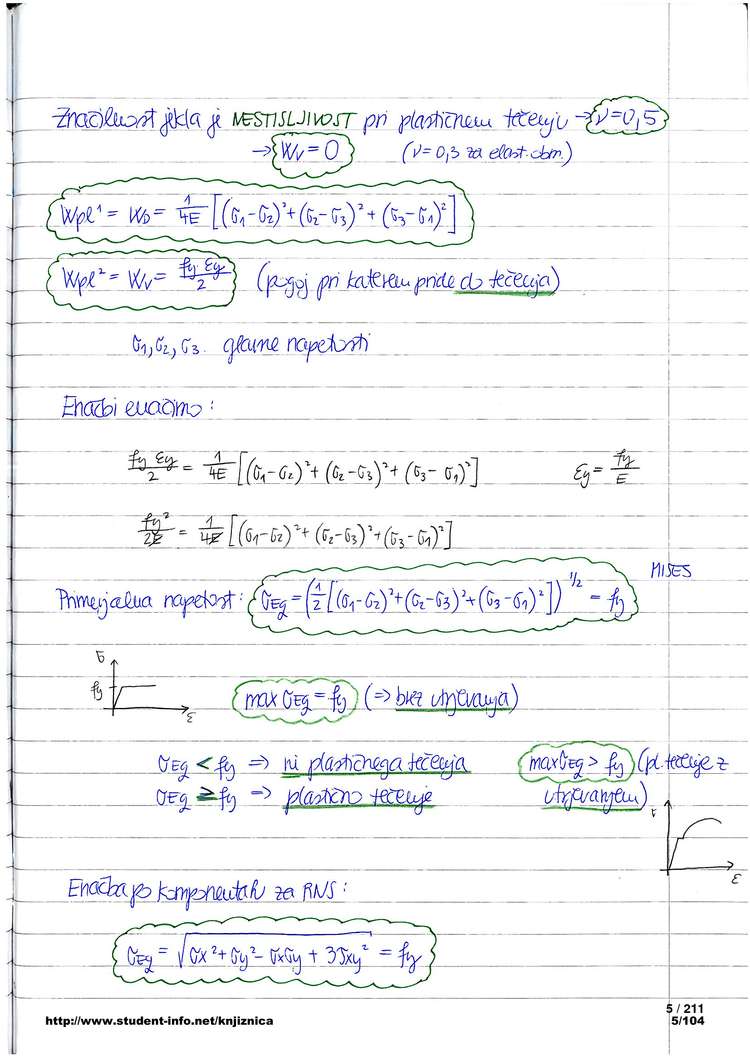 Značilnost jekla je NESTISLJIVOST pri plastičnem tečenju → ν=0,5
→ Wv = 0 (ν = 0,3 za elast. obm.)
Wpl¹ = WD = 1/4E [(σ1-σ2)² + (σ2-σ3)² + (σ3-σ1)²]
Wpl² = Wv = fy εy/2 (pogoj pri katerem pride do tečenja)
σ1, σ2, σ3. glavne napetosti
Enačbi enačimo:
fy εy/2 = 1/4E [(σ1-σ2)² + (σ2-σ3)² + (σ3-σ1)²] εy = fy/E
fy²/2E = 1/4E [(σ1-σ2)² + (σ2-σ3)² + (σ3-σ1)²]
MISES
Primerjalna napetost: σEg = (1/2 [(σ1-σ2)² + (σ2-σ3)² + (σ3-σ1)²])^1/2 = fy
σ
fy
ε
max σEg = fy (⇒ brez utrjevanja)
σEg < fy ⇒ ni plastičnega tečenja max σEg > fy (pl. tečenje z
σEg ≥ fy ⇒ plastično tečenje utrjevanjem)
σ
ε
Enačba po komponentah za RNS:
σEg = √σx² + σy² - σxσy + 3τxy² = fy
5 / 211
http://www.student-info.net/knjiznica 5/104